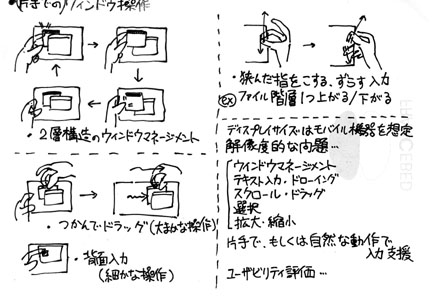 ・片手でのウィンドウ操作
・2層構造のウィンドウマネージメント
・つかんでドラッグ(大まかな操作)
・背面入力
(細かな操作)
・挟んだ指をこする、ずらす入力
ex ファイル階層1つ上がる/下がる
ディスプレイサイズはモバイル機器を想定
解像度的な問題…
ウインドウマネージメント
テキスト入力・ドローイング
スクロール・ドラッグ
選択
拡大・縮小
片手で、もしくは自然な動作で
入力支援
ユーザビリティ評価…